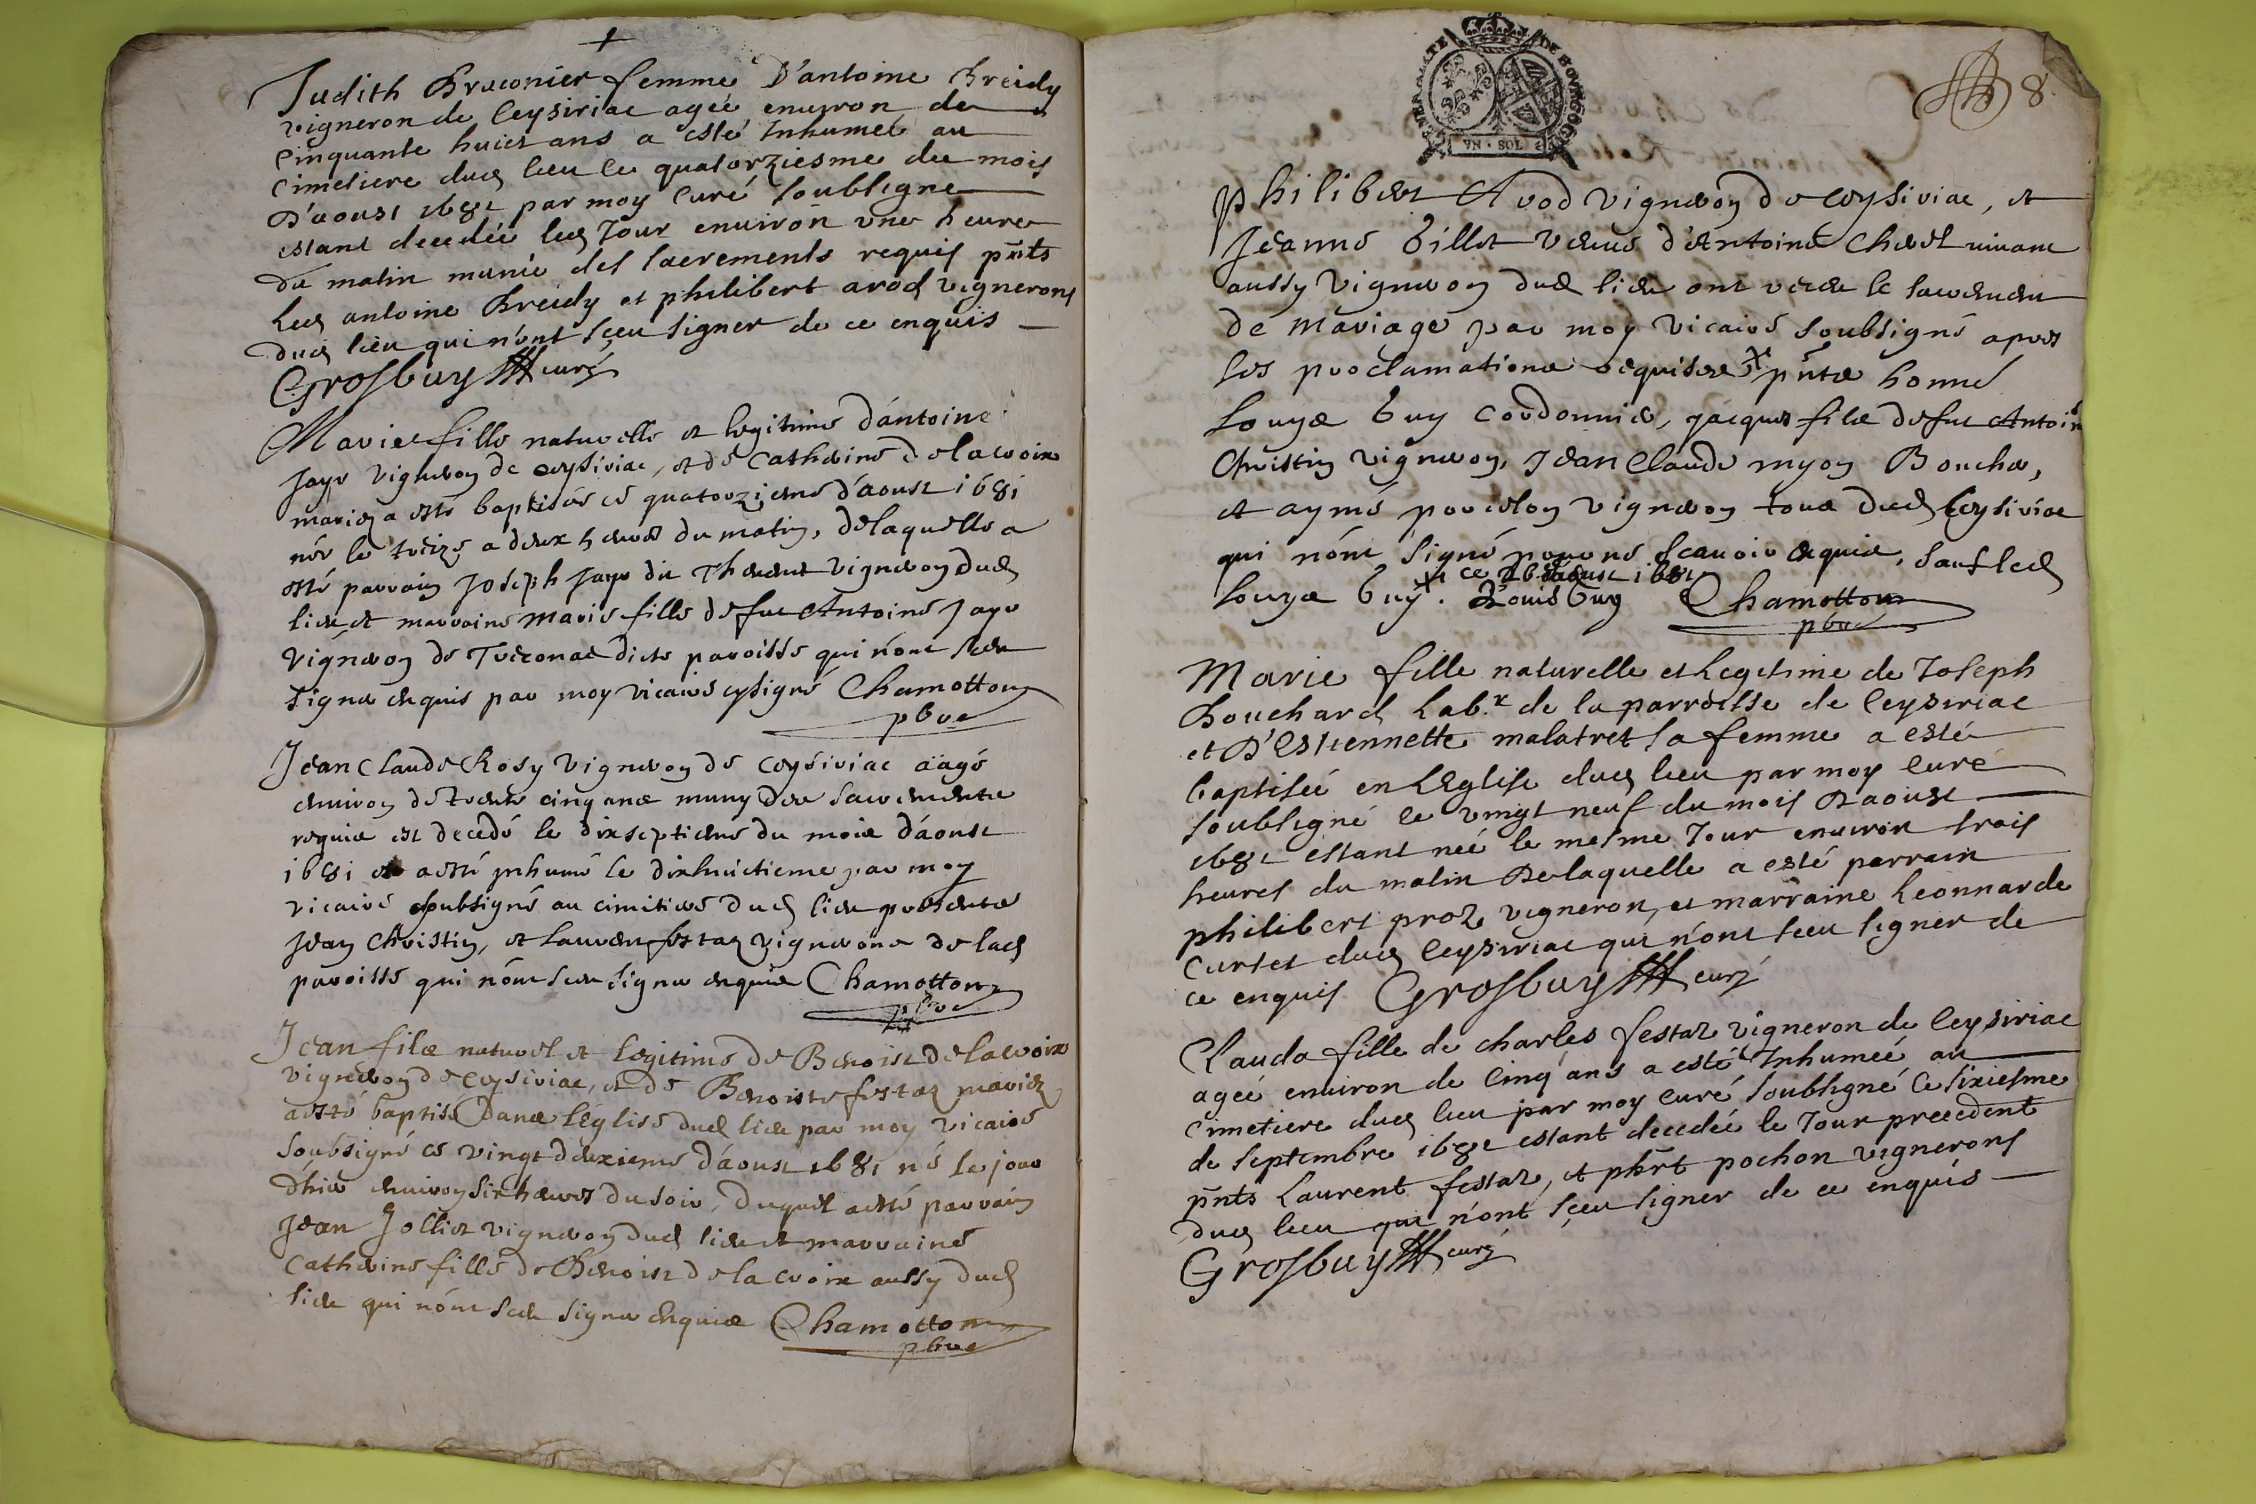 Judith Braconier femme D'antoine Breidy
vigneron de Ceysiriac ageé enuiron de
Cinquante huict ans a esté Inhumeé au
Cimetiere dud lieu le quatorziesme du mois
D'aoust 1681 par moy Curé soubsigne
estant decedée led Jour enuiron vne heure
du matin munie des sacrements requis pnts
Led antoine Breidy et philibert arod vignerons
dud lieu qui n'ont sçeu signer de ce enquis
Grosbuy curé
Marie fille naturelle et legitime d'antoine
Jayr vigneron de ceysiriac, et de Catherine delacroix
mariez a esté baptisée ce quatorzieme d'aoust 1681
née le treize a deux heures du matin, de laquelle a
esté parrain Joseph Jayr dit vigneron dud
lieu et marraine Marie fille de fut Antoine Jayr
vigneron de Treconas dicte paroisse qui n'ont sceu
signer enquis par moy vicaire cysigné Chamotton
pbre
Jean Claude Rosy vigneron de ceysiriac aagé
enuiron de trente cinq ans muny des sacrements
requis est decedé le dixseptieme du mois d'aoust
1681 et a esté inhumé le dixhuictieme par moy
vicaire soubsigné au cimitiere dud lieu presents
Jean Christin, et Laurent festaz vignerons de lad
paroisse qui n'ont sceu signer enquis Chamotton
pbre
Jean fils naturel et legitime de Benoist delacroix
vigneron de Ceysiriac, et de Benoiste festaz mariez
a esté baptisé Dans l'Eglise dud lieu par moy vicaire
soubsigné ce vingt deuxieme d'aoust 1681 né le jour
d'hier enuiron six heures du soir, duquel a esté parrain
Jean Jolliet vigneron dud lieu et marraine
Catherine fille de Benoist de la croix aussy dud
lieu qui n'ont sceu signer enquis Chamotton
pbre
GENERALITE DE BOVRGOGNE
VN · SOL
8
Philibert Arod vigneron de ceysiriac, et
Jeanne billet veuue d'Antoine Chevel viuant
aussy vigneron dud lieu ont receu le sacrement
de Mariage par moy vicaire soubsigné apres
les proclamations requises x pnts honné
Louys buy Cordonnier, jacques fils de fut Antoine
Christin vigneron, Jean Claude myon Boucher,
et aymé porcelon vigneron tous dud Ceysiriac
qui n'ont signé pour ne scauoir enquis, sauf led
x ce 26 d'aoust 1681
Louys buy. Louis buy Chamotton
pbre
Marie fille naturelle et Legitime de Joseph
Bouchard Lab.r de la parroisse de Ceysiriac
et D'Estiennette malatret sa femme a esté
baptiseé en L'Eglise dud lieu par moy curé
soubsigné le vingt neuf du mois D'aoust
1681 estant neé le mesme Jour enuiron trois
heures du matin De laquelle a esté parrain
philibert proz vigneron, et marraine Leonnarde
Curtet dud Ceysiriac qui n'ont sceu signer de
ce enquis Grosbuy curé
Clauda fille de charles festaz vigneron de Ceysiriac
ageé enuiron de Cinq ans a esté Inhumeé au
Cimetiere dud lieu par moy curé soubsigné Ce sixiesme
de septembre 1681 estant decedée le Jour precedent
pnts Laurent festaz, et phrt pochon vignerons
dud lieu qui n'ont sçeu signer de ce enquis
Grosbuy curé